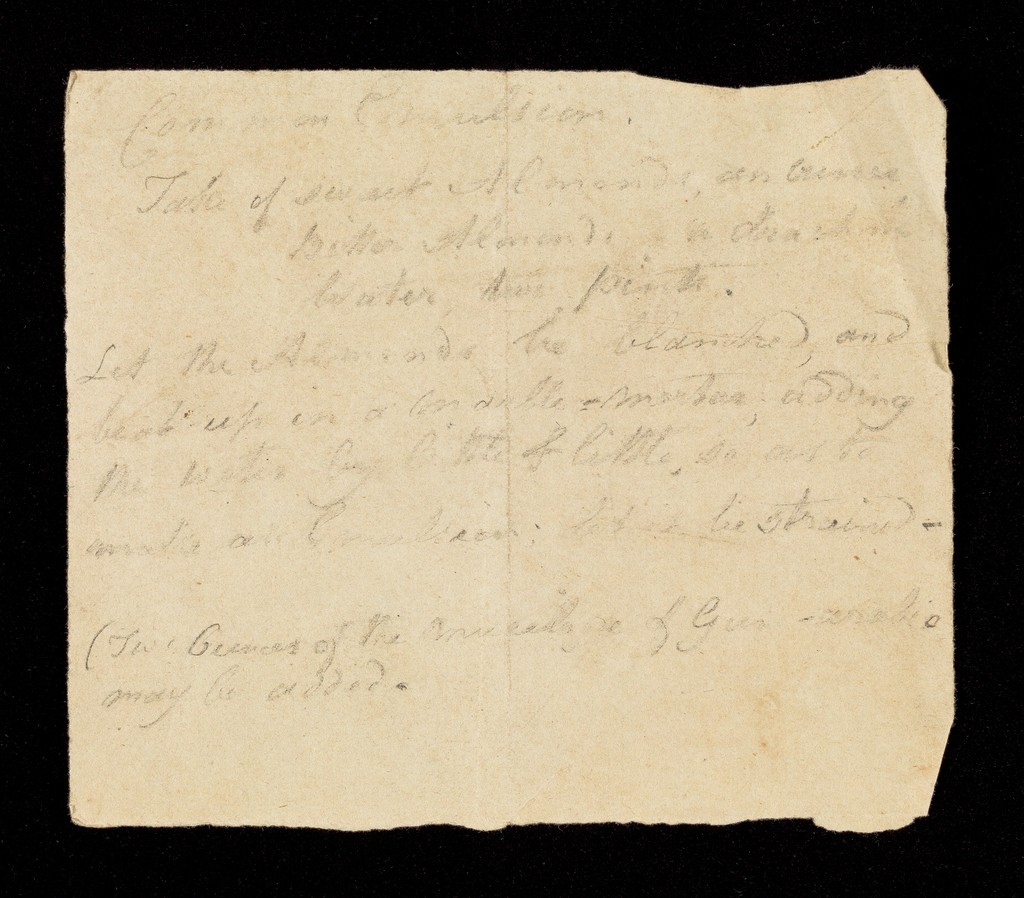 Common Emulsion.
Take of sweet Almonds, an ounce,
Bitter Almonds, a drachm
Water, two pints.
Let the Almonds be blanched, and
beat up in a marble-mortar, adding
the water by little & little, so as to
make an Emulsion; let it be strained-
(Two Ounces of the mucilage of Gum-arabic
may be added.